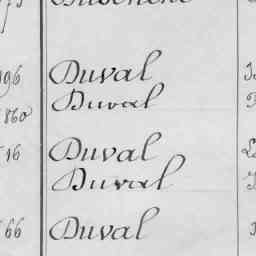 96 Duval
Duval
1860
16 Duval
Duval
66 Duval